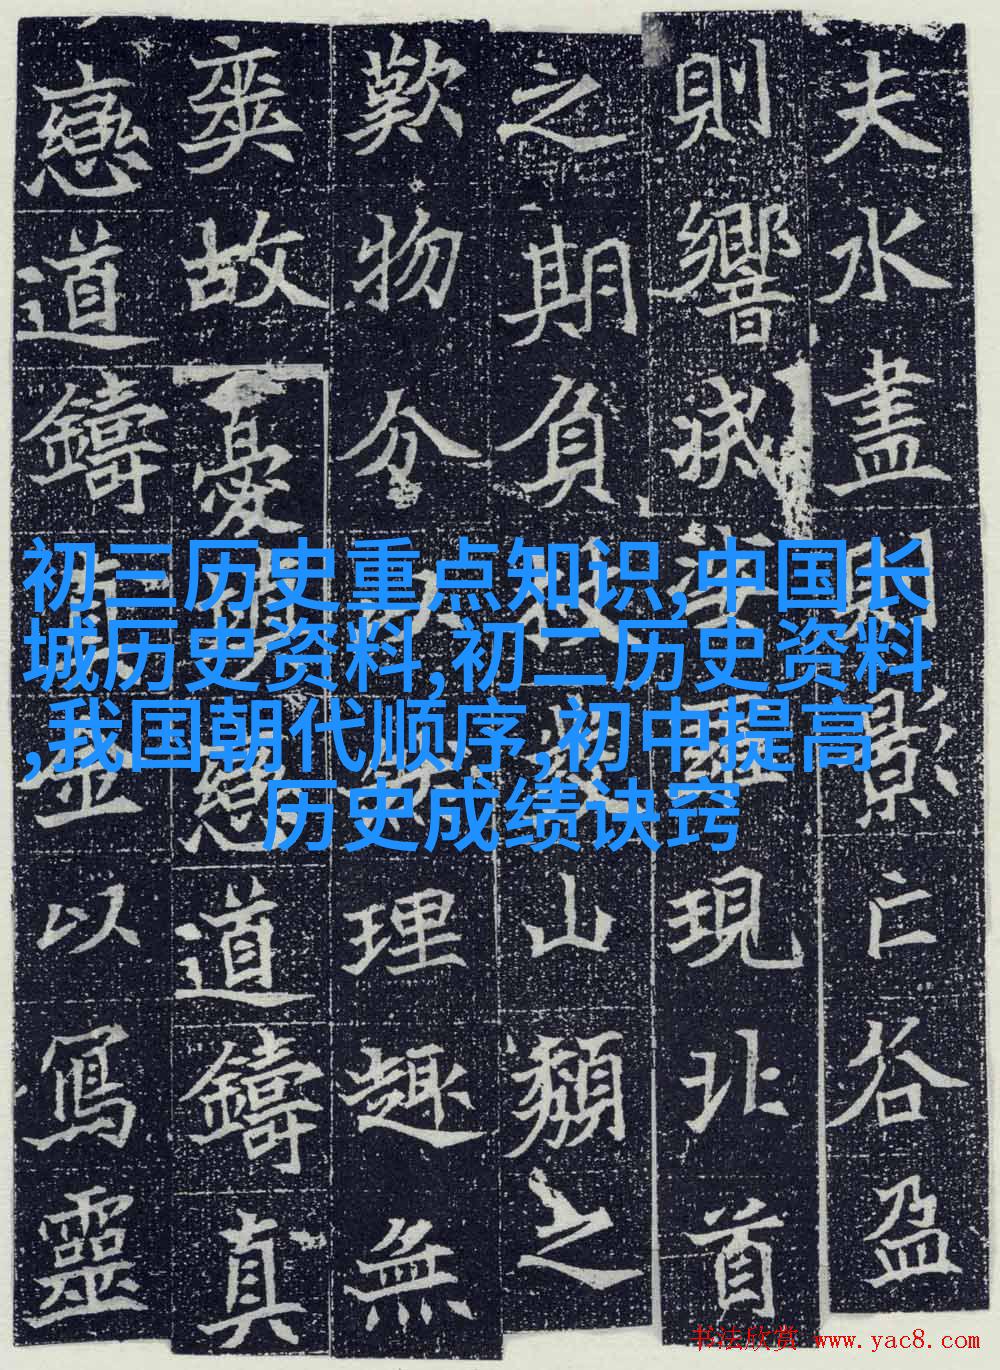 夫水盡則影亡谷盈
則響現北首
之期負杖山頹之
歎物分理趣無
爽故憂戀道鑄真
戀道鑄金以寫靈
初三历史重点知识,中国长
城历史资料,初二历史资料
,我国朝代顺序,初中提高
历史成绩诀窍
书法欣赏 www.yac8.com